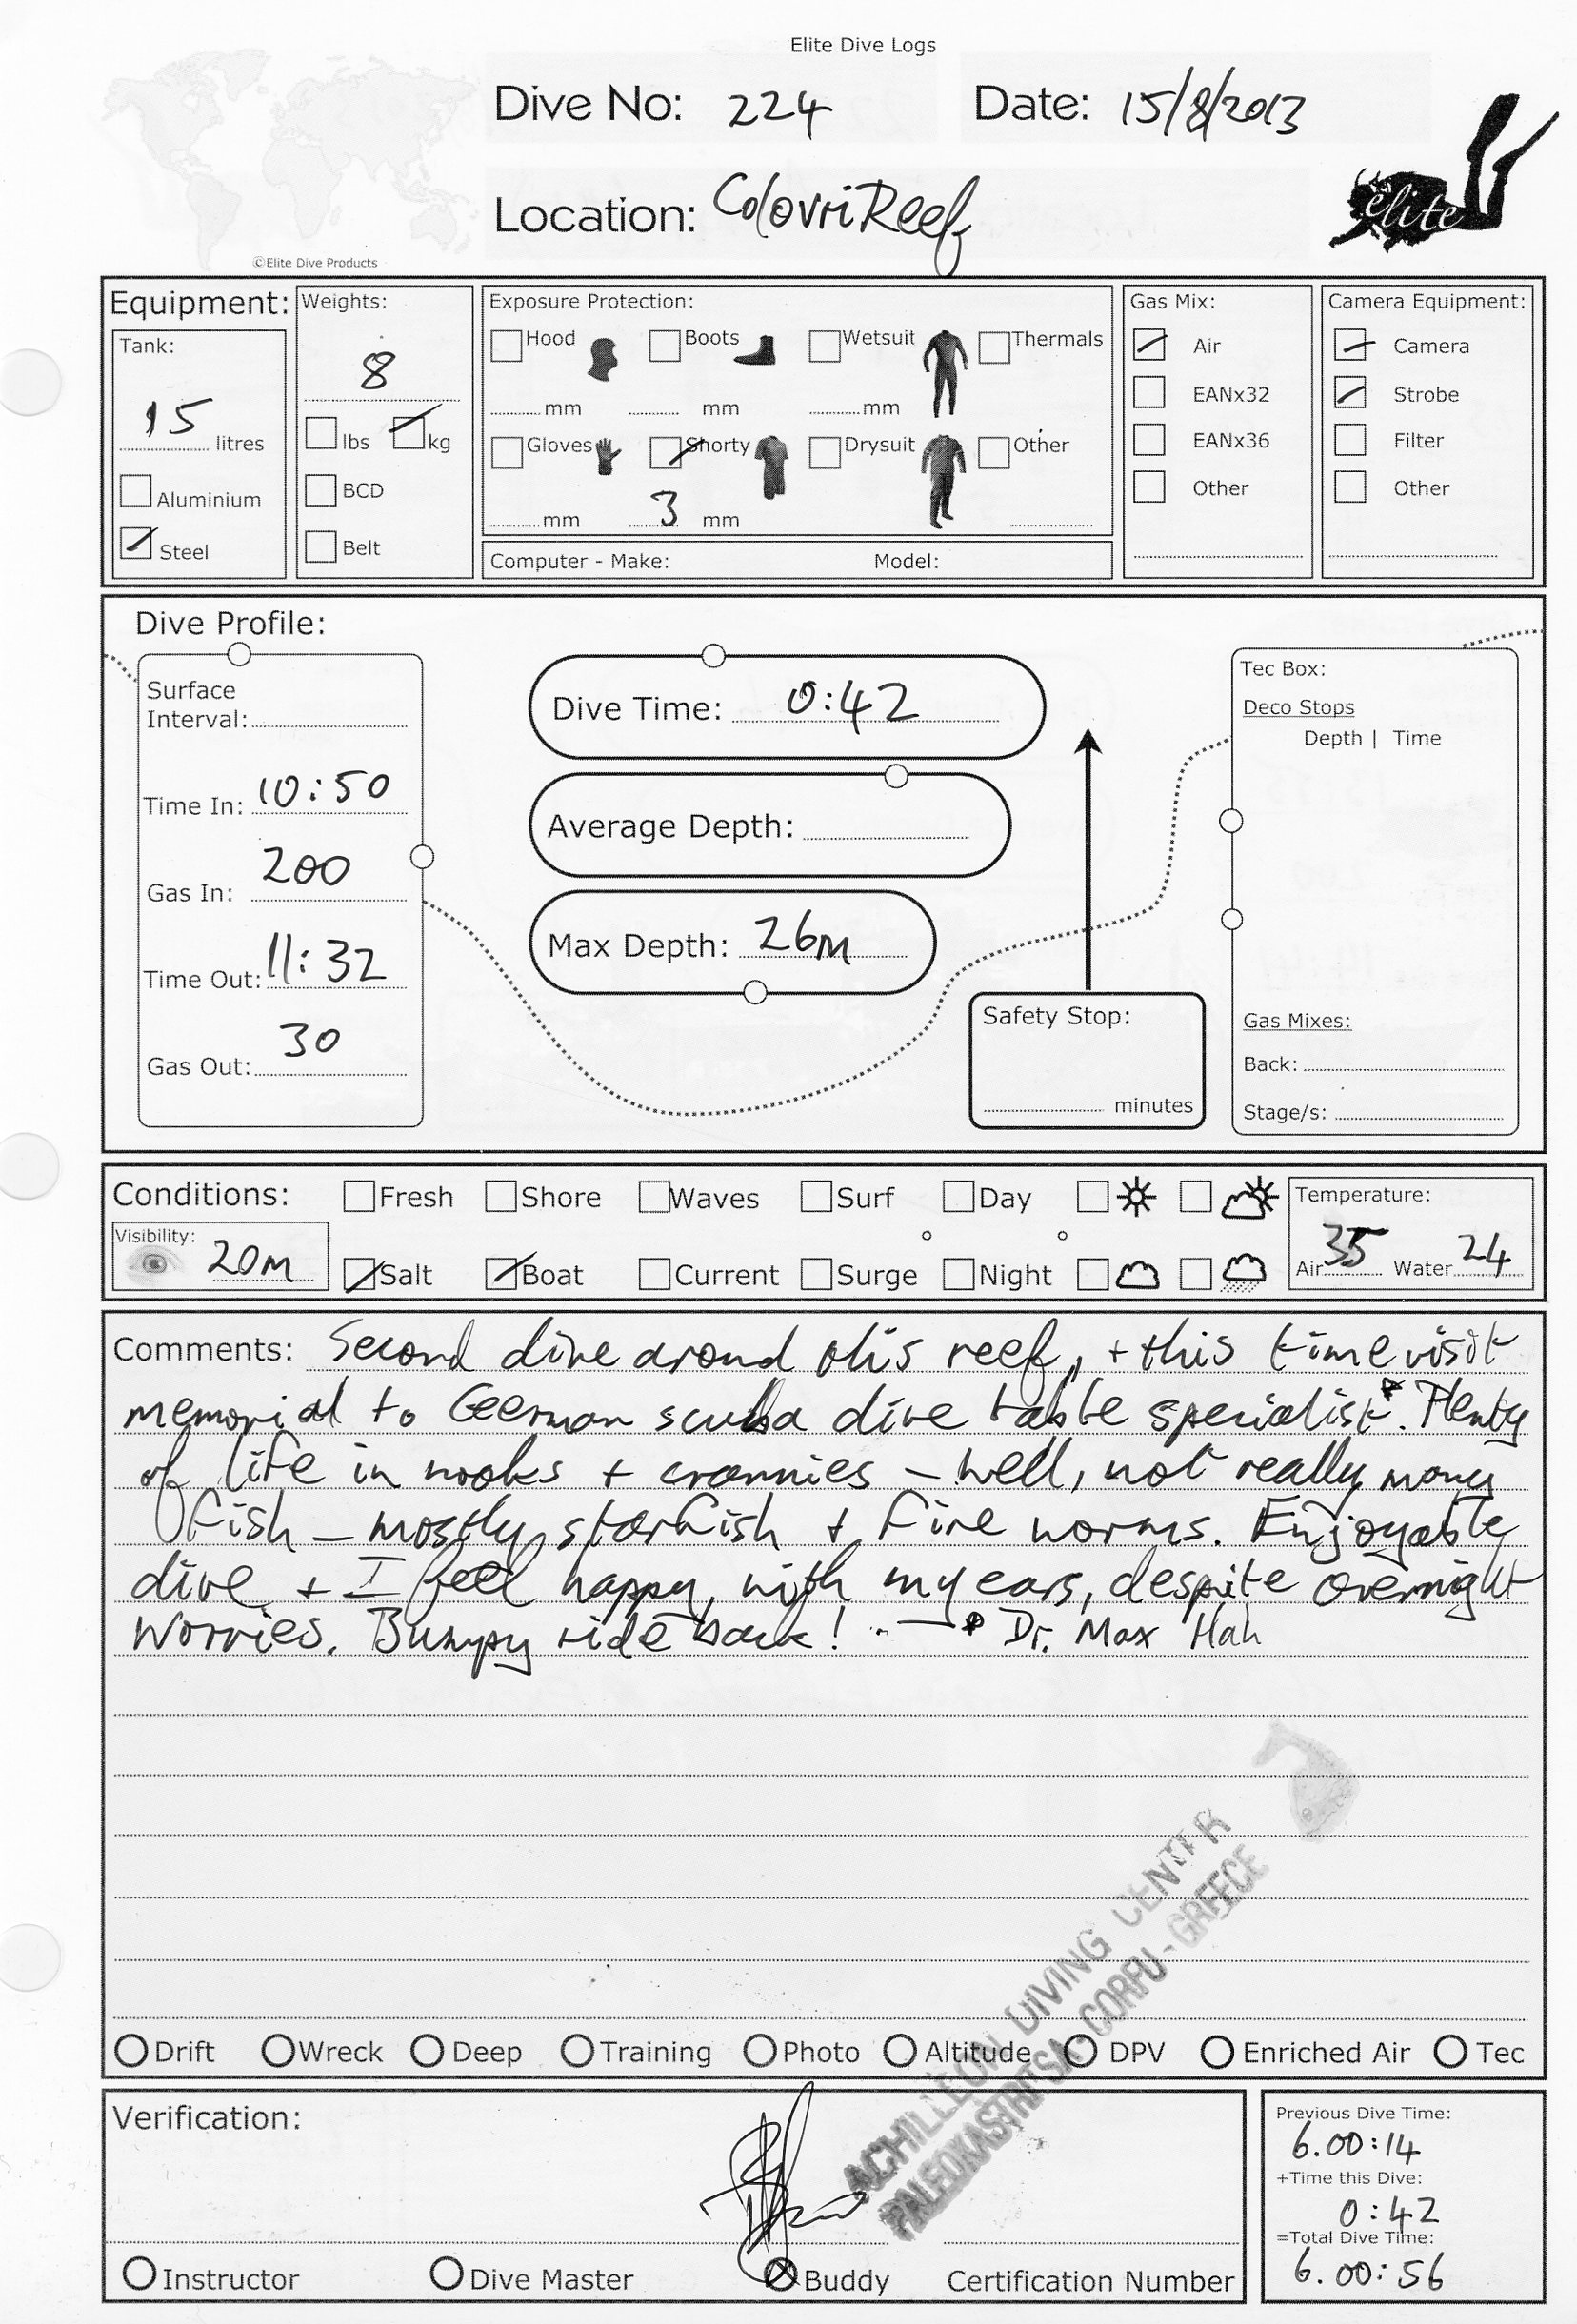 Elite Dive Logs
Dive No: 224 Date: 15/8/2013
Location: Colovri Reef
elite
©Elite Dive Products
Equipment: Weights: Exposure Protection: Gas Mix: Camera Equipment:
Tank: Hood Boots Wetsuit Thermals Air Camera
8 mm mm mm EANx32 Strobe
15 litres lbs kg Gloves Shorty Drysuit Other EANx36 Filter
Aluminium BCD Other Other
3
mm mm
Steel Belt
Computer - Make: Model:
Dive Profile:
Surface
Interval:
Time In: 10:50
Gas In: 200
Time Out: 11:32
Gas Out: 30
Dive Time: 0:42
Average Depth:
Max Depth: 26m
Safety Stop:
minutes
Tec Box:
Deco Stops
Depth | Time
Gas Mixes:
Back:
Stage/s:
Conditions: Fresh Shore Waves Surf Day Temperature:
Visibility: 20m Salt Boat Current Surge Night Air 35 Water 24
Comments: Second dive around this reef, + this time visit
memorial to German scuba dive table specialist*. Plenty
of life in nooks + crannies – well, not really many
fish – mostly starfish + fire worms. Enjoyable
dive + I feel happy with my ears, despite overnight
worries. Bumpy ride back! — * Dr. Max Hah
ACHILLEON DIVING CENTER
PALEOKASTRITSA - CORFU - GREECE
Drift Wreck Deep Training Photo Altitude DPV Enriched Air Tec
Verification:
Instructor Dive Master Buddy Certification Number
Previous Dive Time:
6.00:14
+Time this Dive:
0:42
=Total Dive Time:
6.00:56